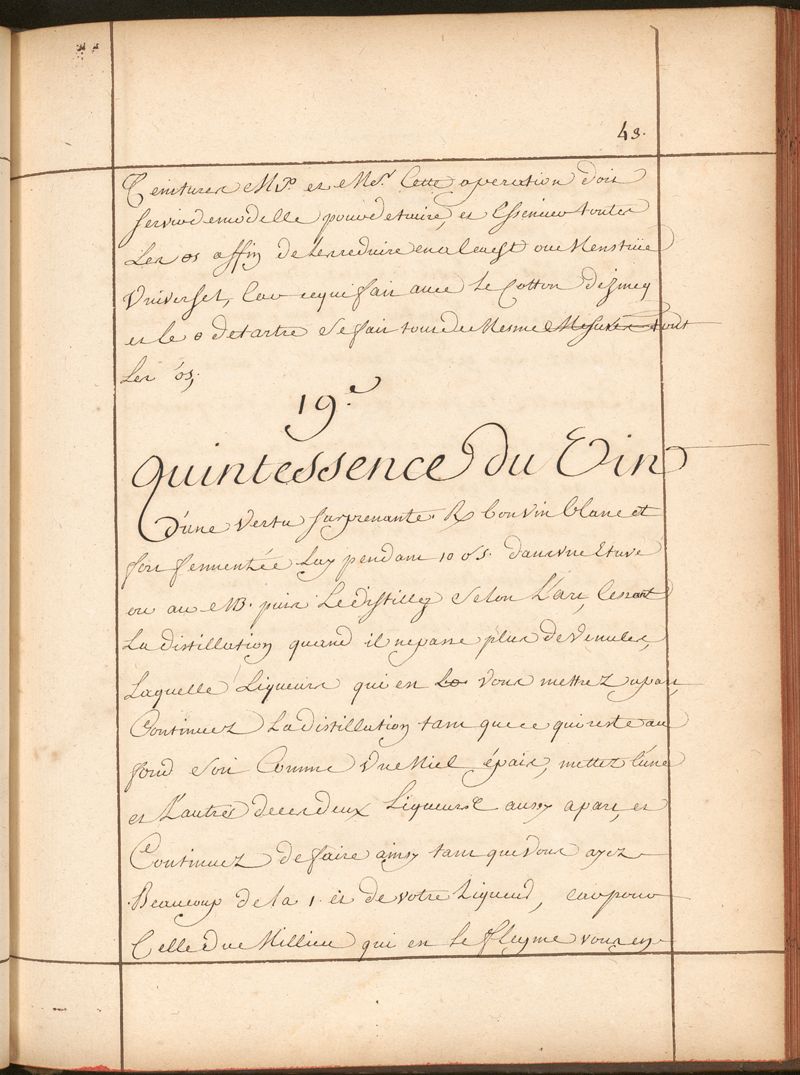 43.
Teintures et Cette operation doit
servir de modelle pour detruire, et Essencier toutes
Les os affin de les reduire en alcaest ou Menstrüe
Vniversel, Car ce qui fait avec le Cotton
et le o de tartre Se fait tout de Mesme tout
Les os,
19.e
Quintessence du Vin
d'une Vertu surprenante. R bon vin blanc et
fort fermentée Lay pendant 10 os. dans une Etuve
ou au MB. puis Le distillez Selon L'art, Cessant
La distillation quand il ne passe plus de Venules,
Laquelle Liqueurs qui en Vous mettrez apart,
Continuez La distillation tant que ce qui reste au
fond Soit Comme Vne Miel épais, mettez L'une
et L'autre de ces deux Liqueurs aussy apart, et
Continuez de faire ainsy tant que Vous ayez
Beaucoup de la 1. et de votre Liqueur, car pour
Celle du Millieu qui en le flegme vous en